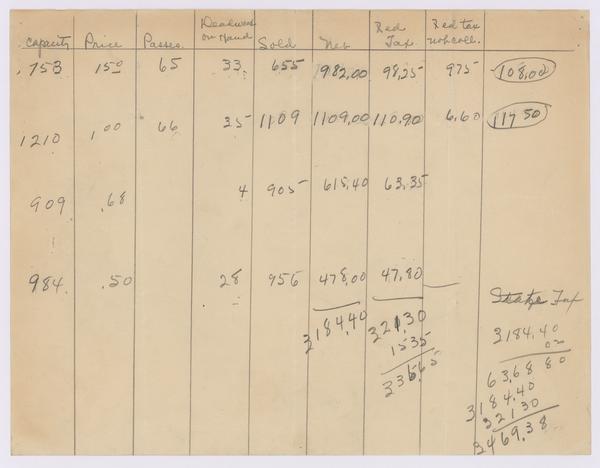 Capacity Price Passes Deadwood on Hand Sold Net Fed Tax Fed tax not coll.
753 1 50 65 33 655 982.00 98.25 9 75 108.00
1210 1 00 66 35 1109 1109.00 110.90 6.60 117 50
909 .68 4 905 615.40 63.35
984 .50 28 956 478.00 47.80
State Tax
3184.40 321.30 3184.40
1535 02
336.65 63.68 80
3184.40
32130
3469.38